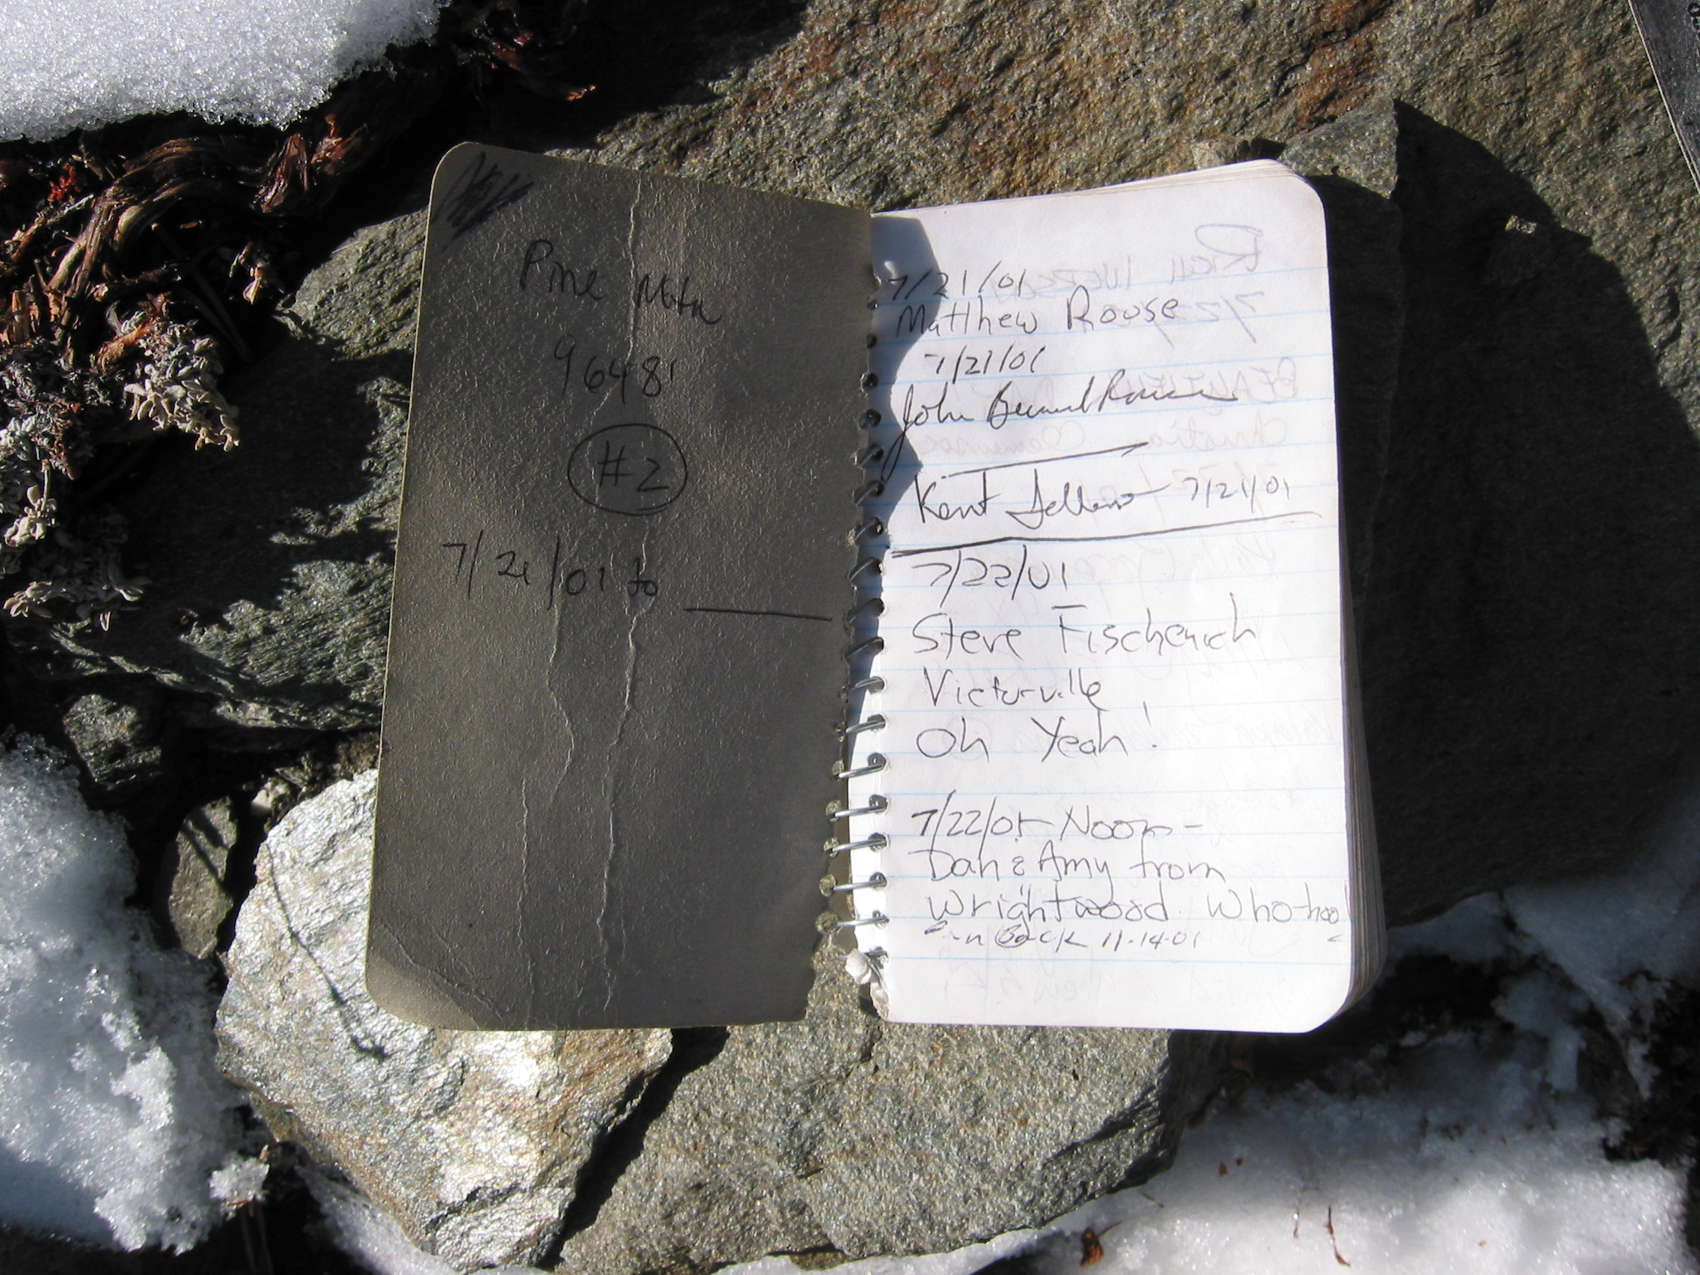 Pine Mtn
9648'
#2
7/21/01 to
7/21/01
Matthew Rouse
7/21/01
John
Kent 7/21/01
7/22/01
Steve Fischenich
Victorville
Oh Yeah!
7/22/01 Noon-
Dan & Amy from
Wrightwood. Who-hoo!
Back 11-14-01